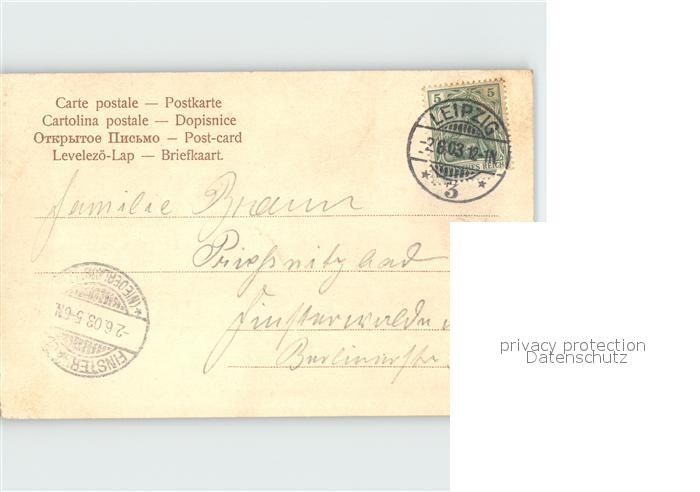 Carte postale — Postkarte
Cartolina postale — Dopisnice
Открытое Письмо — Post-card
Levelezö-Lap — Briefkaart.
5 5
LEIPZIG
-2.6.03.12-1N.
* 3 *
Familie Braun
Priessnitzbad
Finsterwalde
Berlinerstr
(NIEDERLAUS
-2.6.03.5-6N.
FINSTER
privacy protection
Datenschutz